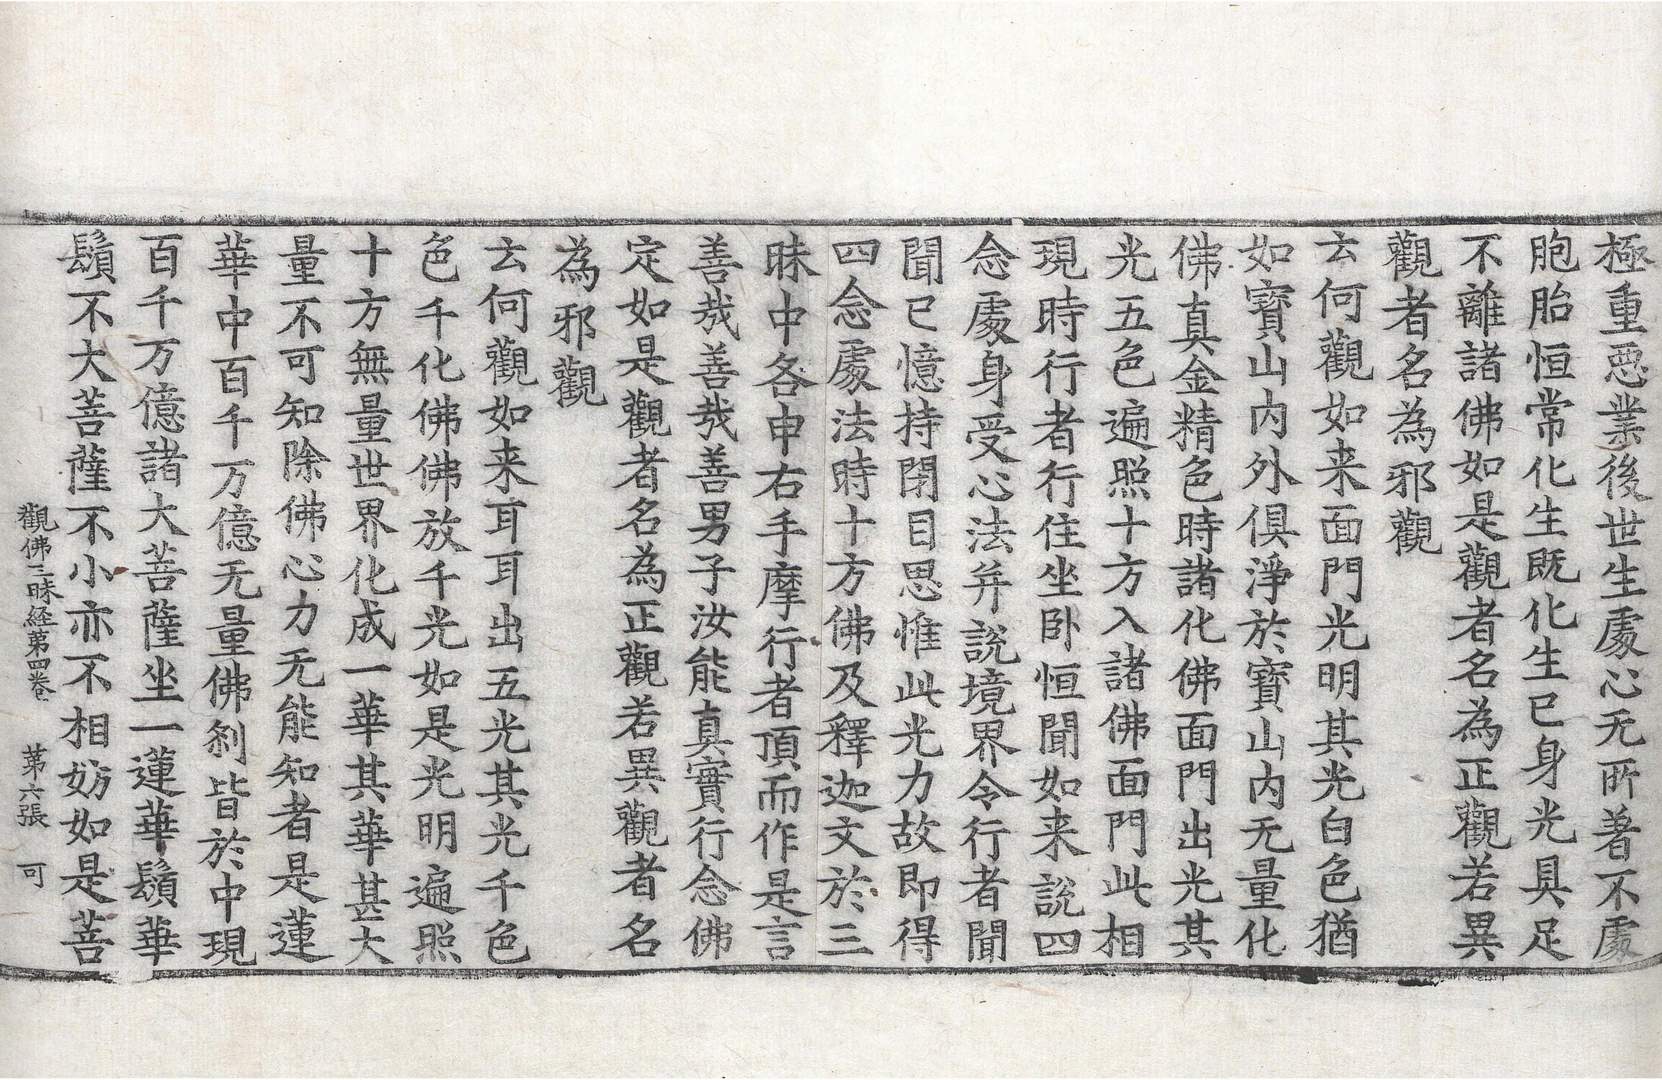 極重惡業後世生處心无所著不處
胞胎恒常化生既化生已身光具足
不離諸佛如是觀者名為正觀若異
觀者名為邪觀
云何觀如来面門光明其光白色猶
如寶山内外俱淨於寶山内无量化
佛真金精色時諸化佛面門出光其
光五色遍照十方入諸佛面門此相
現時行者行住坐卧恒聞如来說四
念處身受心法并說境界令行者聞
聞已憶持閉目思惟此光力故即得
四念處法時十方佛及釋迦文於三
昧中各申右手摩行者頂而作是言
善哉善哉善男子汝能真實行念佛
定如是觀者名為正觀若異觀者名
為邪觀
云何觀如来耳耳出五光其光千色
色千化佛佛放千光如是光明遍照
十方無量世界化成一華其華甚大
量不可知除佛心力无能知者是蓮
華中百千万億无量佛刹皆於中現
百千万億諸大菩薩坐一蓮華鬚華
鬚不大菩薩不小亦不相妨如是菩
觀佛三昧経第四卷 第六張 可